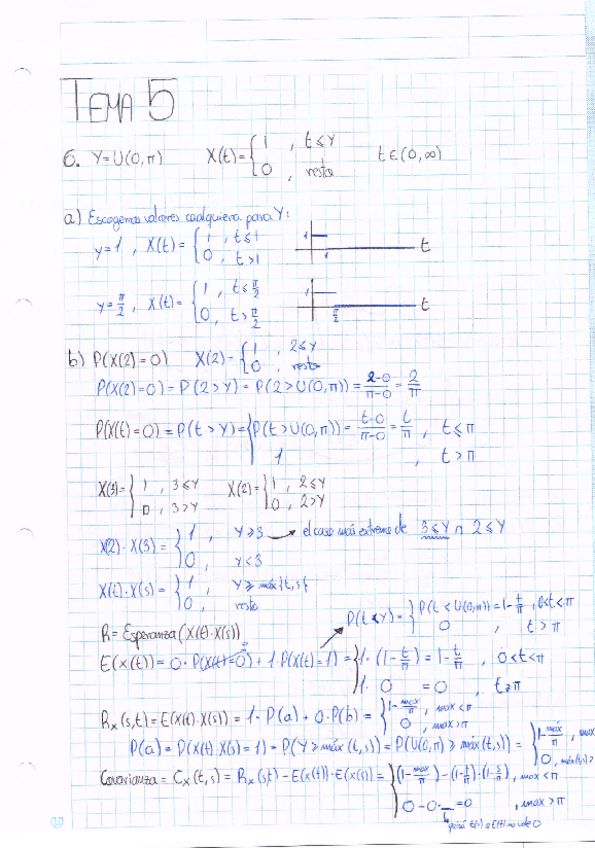 TEMA 5
6. Y=U(0,π) X(t)={1, t≤Y
0, resto t∈(0,∞)
a) Escogemos valores cualquiera para Y:
y=1, X(t)={1, t≤1
0, t>1
1 1 t
y=π/2, X(t)={1, t≤π/2
0, t>π/2
1 π/2 t
b) P(X(2)=0) X(2)={1, 2≤Y
0, resto
P(X(2)=0)=P(2>Y)=P(2>U(0,π))=2-0/π-0=2/π
P(X(t)=0)=P(t>Y)={P(t>U(0,π))=t-0/π-0=t/π, t≤π
1, t>π
X(3)={1, 3≤Y X(2)={1, 2≤Y
0, 3>Y 0, 2>Y
X(2)·X(3)={1, Y≥3 → el caso más extremo de 3≤Y ∩ 2≤Y
0, Y<3
X(t)·X(s)={1, Y≥máx{t,s}
0, resto
P(t≤Y)={P(t<U(0,π))=1-t/π, 0<t<π
0, t>π
R=Esperanza(X(t)·X(s))
E(X(t))=0·P(X(t)=0)+1·P(X(t)=1)={1·(1-t/π)=1-t/π, 0<t<π
1·0=0, t≥π
Rx(s,t)=E(X(t)·X(s))=1·P(a)+0·P(b)={1-max/π, max<π
0, max>π
P(a)=P(X(t)·X(s)=1)=P(Y≥máx(t,s))=P(U(0,π)≥máx(t,s))={1-máx/π, max
0, máx(t,s)>
Covarianza=Cx(t,s)=Rx(s,t)-E(X(t))·E(X(s))={(1-max/π)-(1-t/π)·(1-s/π), max<π
0-0·_=0, max>π